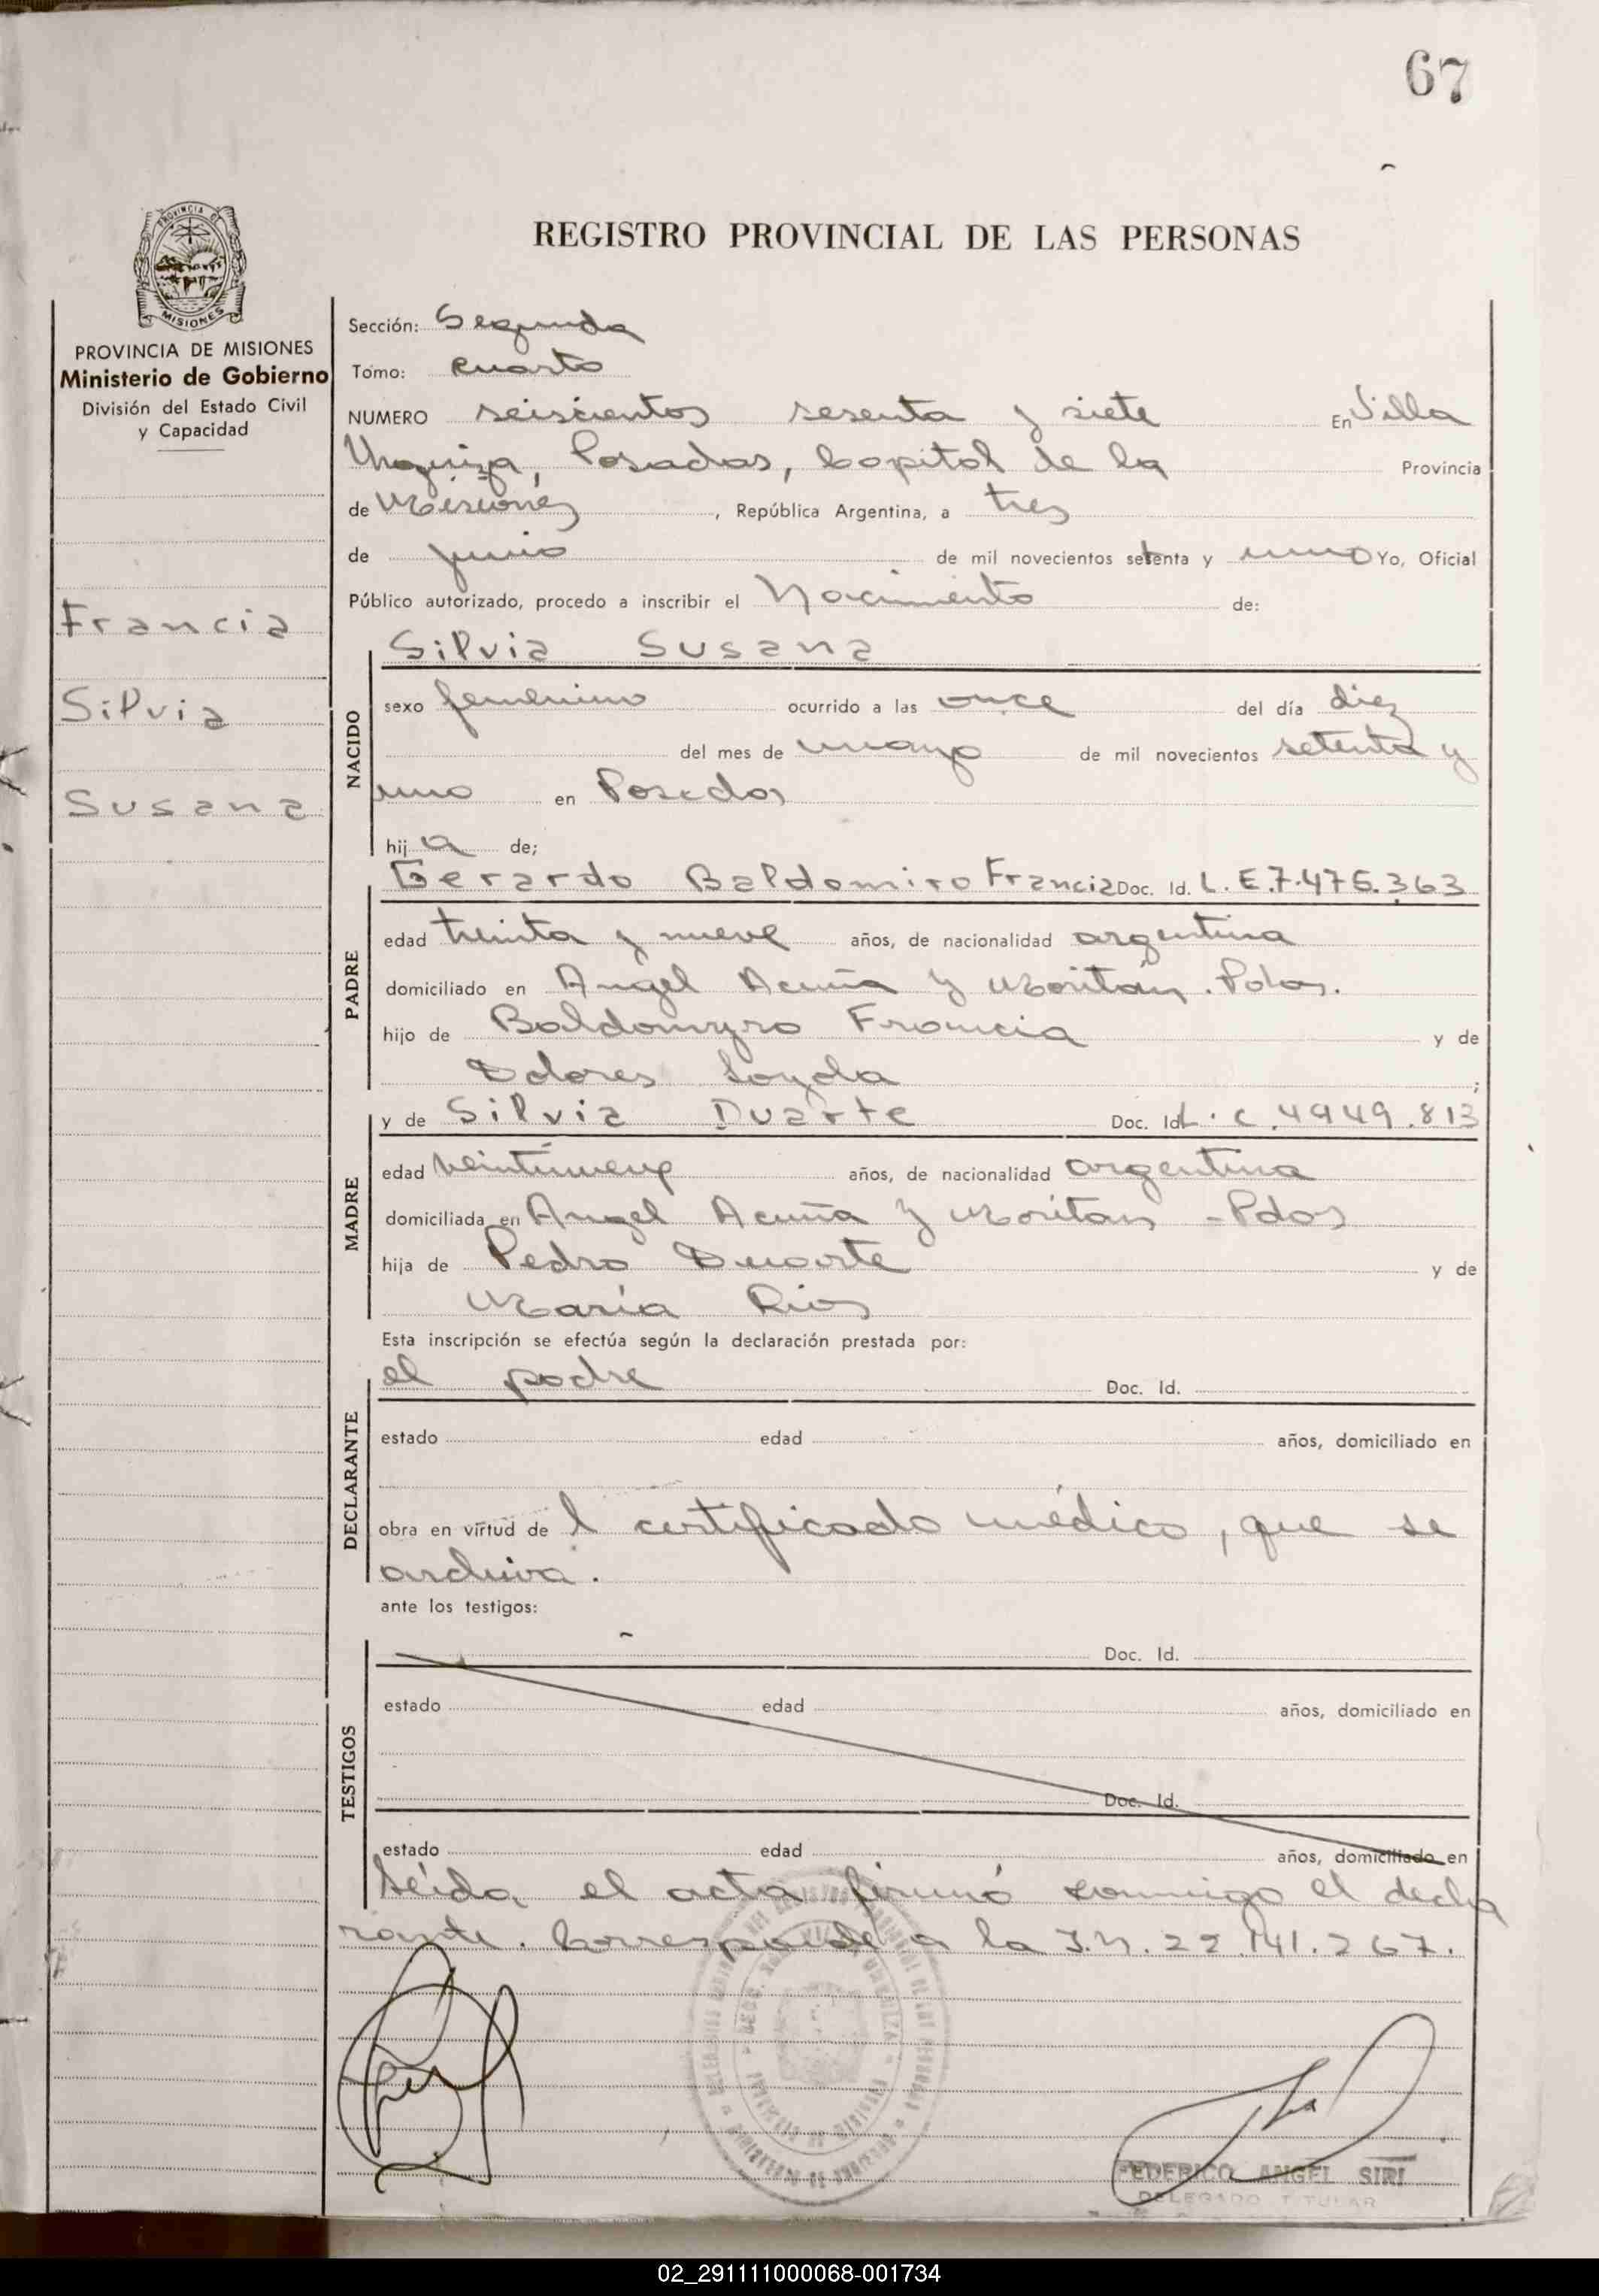 67
REGISTRO PROVINCIAL DE LAS PERSONAS
PROVINCIA DE
MISIONES
PROVINCIA DE MISIONES
Ministerio de Gobierno
División del Estado Civil
y Capacidad
Francia
Silvia
Susana
Sección: Segunda
Tomo: Cuarto
NUMERO seiscientos sesenta y siete En Villa
Urquiza, Posadas, Capital de la Provincia
de Misiones, República Argentina, a tres
de junio de mil novecientos setenta y uno Yo, Oficial
Público autorizado, procedo a inscribir el Nacimiento de:
Silvia Susana
NACIDO
sexo femenino ocurrido a las once del día diez
del mes de mayo de mil novecientos setenta y
uno en Posadas
hija de;
Gerardo Baldomiro Francia Doc. Id. L.E.7.475.363
PADRE
edad treinta y nueve años, de nacionalidad argentina
domiciliado en Angel Acuña y Moritán. Pdas.
hijo de Baldomyro Francia y de
Dolores Loyola;
y de Silvia Duarte Doc. Id. L.C.4949.813
MADRE
edad veintinueve años, de nacionalidad argentina
domiciliada en Angel Acuña y Moritán - Pdas
hija de Pedro Duarte y de
María Rios
Esta inscripción se efectúa según la declaración prestada por:
el padre Doc. Id.
DECLARANTE
estado edad años, domiciliado en
obra en virtud de l certificado médico, que se
archiva.
ante los testigos:
TESTIGOS
Doc. Id.
estado edad años, domiciliado en
Doc. Id.
estado edad años, domiciliado en
Leída el acta firmó conmigo el decla
rante. Corresponde a la I.N. 22.141.267.
FEDERICO ANGEL SIRI
DELEGADO TITULAR
02_291111000068-001734